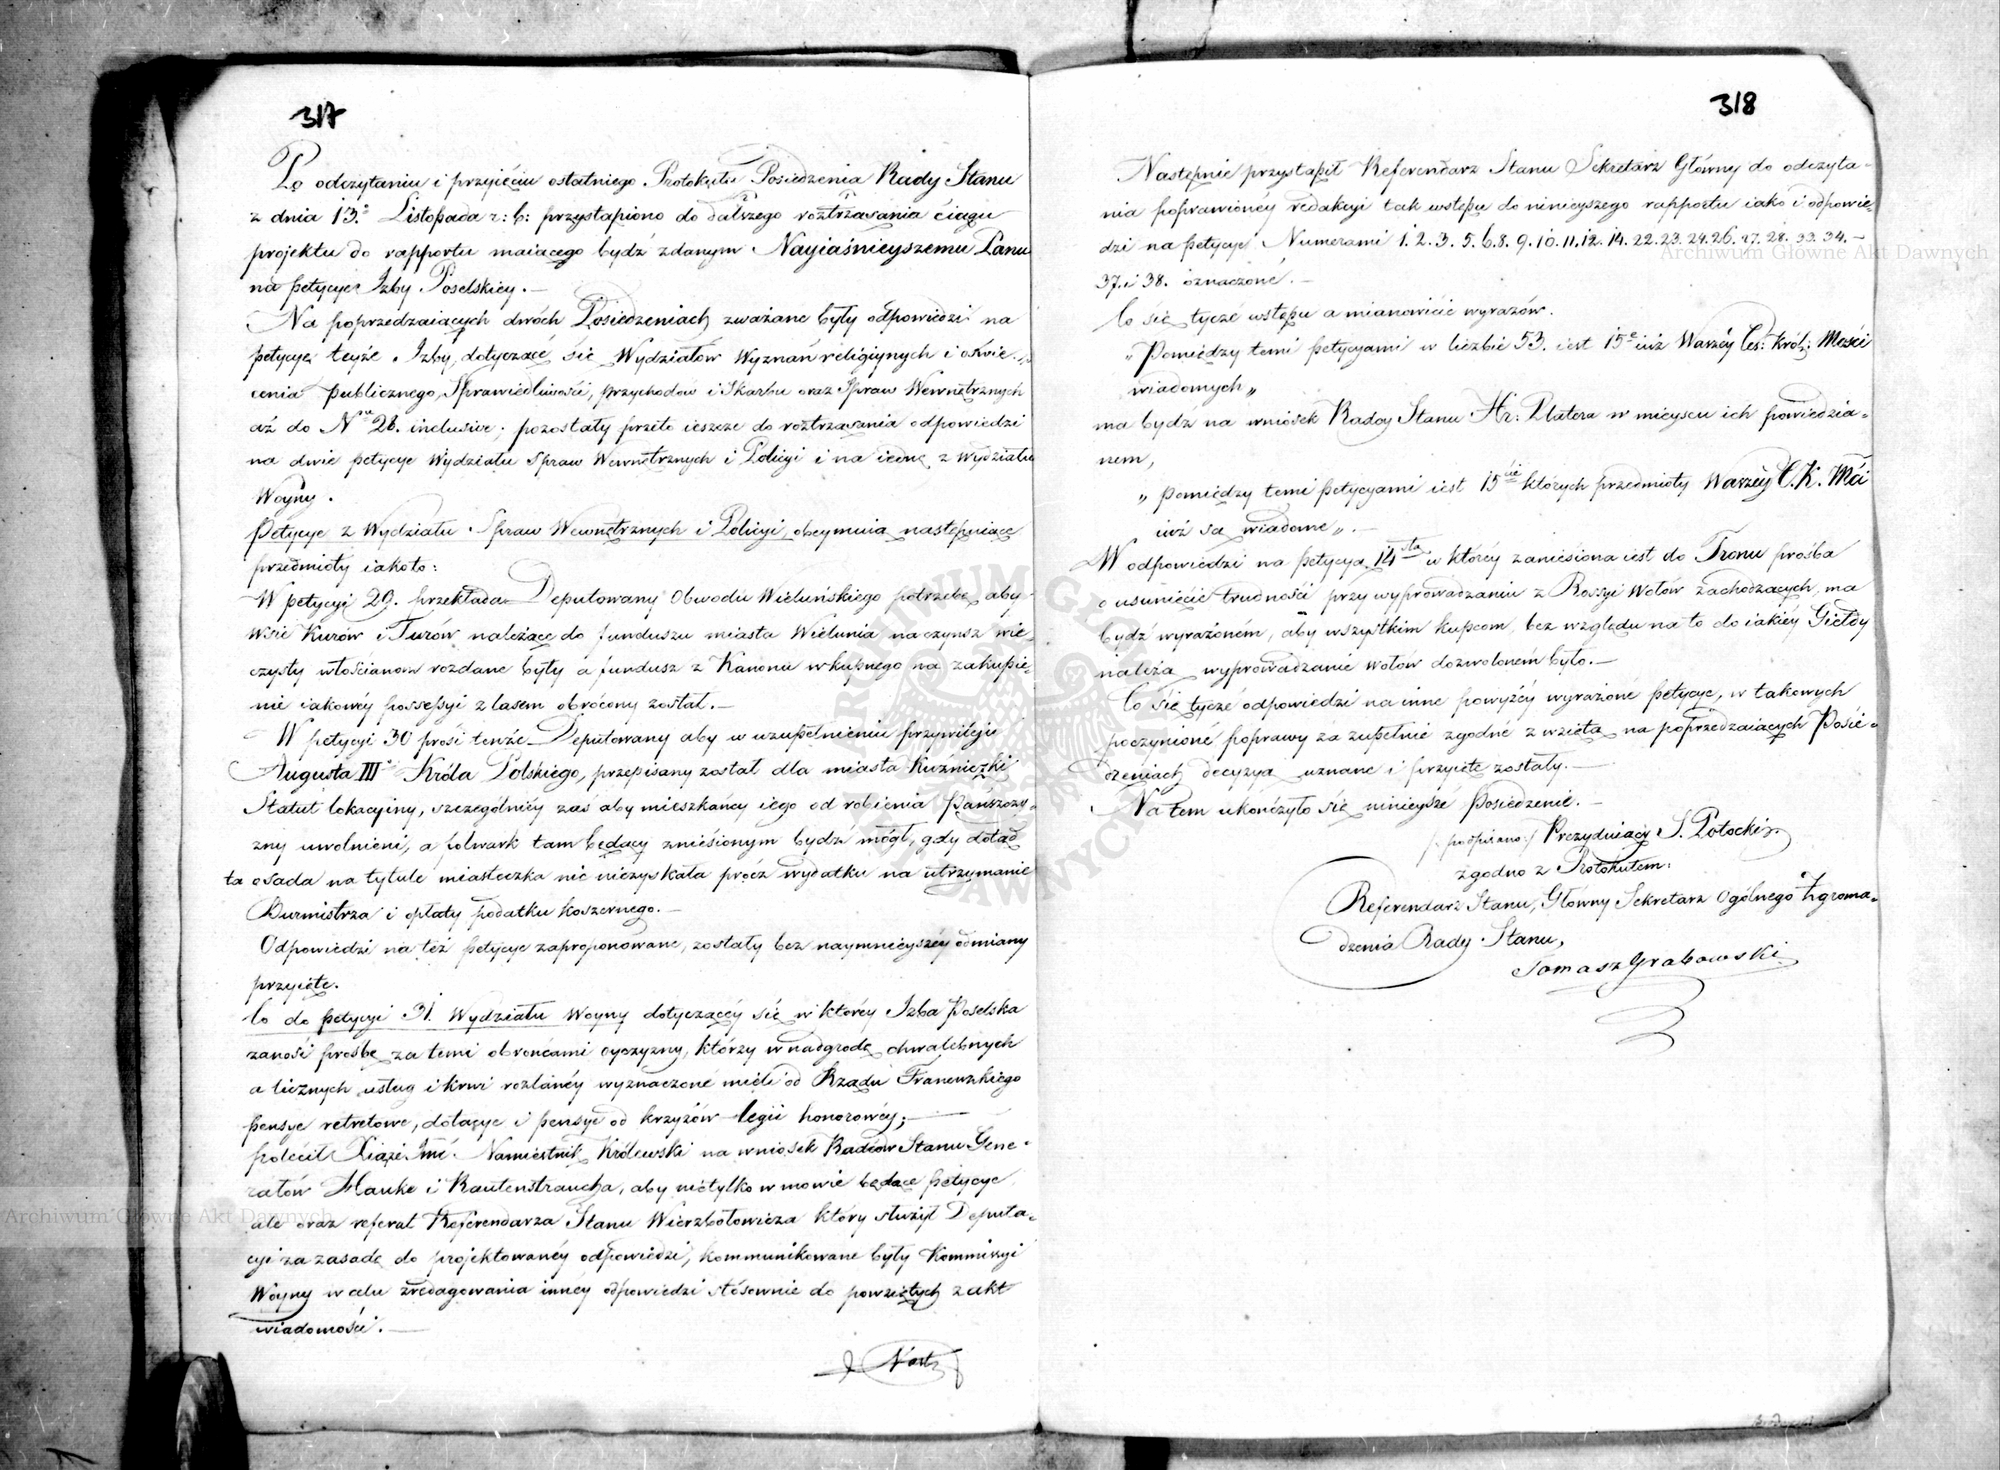 317
Po odczytaniu i przyięciu ostatniego Protokułu Posiedzenia Rady Stanu
z dnia 13.º Listopada r: b: przystąpiono do dalszego roztrząsania ciągu
projektu do rapportu maiącego bydź zdanym Nayiaśnieyszemu Panu
na petycye Izby Poselskiey. —
Na poprzedzaiących dwóch Posiedzeniach zważane były odpowiedzi na
petycye teyże Izby, dotyczące się Wydziałów Wyznań religiynych i oświe-
cenia publicznego, Sprawiedliwości, przychodow i Skarbu oraz Spraw Wewnętrznych
aż do Nru 28. inclusive; pozostały przeto ieszcze do roztrząsania odpowiedzi
na dwie petycye Wydziału Spraw Wewnętrznych i Policyi i na iednę z Wydziału
Woyny.
Petycye z Wydziału Spraw Wewnętrznych i Policyi, obeymuią następuiące
przedmioty iakoto:
W petycyi 29. przekłada Deputowany Obwodu Wieluńskiego potrzebę aby
wsie Kurów i Turów należące do funduszu miasta Wielunia na czynsz wie-
czysty włościanom rozdane były a fundusz z Kanonu wkupnego na zakupie-
nie iakowey possessyi z lasem obrócony został. —
W petycyi 30 prosi tenże Deputowany aby w uzupełnieniu przywileju
Augusta IIIº Króla Polskiego, przepisany został dla miasta Kuzniczki
Statut lokacyiny, szczególniey zaś aby mieszkańcy iego od robienia pańszczy-
zny uwolnieni, a folwark tam będący zniesionym bydź mógł, gdy dotąd
ta osada na tytule miasteczka nic niezyskała prócz wydatku na utrzymanie
Burmistrza i opłaty podatku koszernego. —
Odpowiedzi na też petycye zaproponowane, zostały bez naymnieyszey odmiany
przyięte.
Co do petycyi 31. Wydziału Woyny dotyczącey się w ktorey Izba Poselska
zanosi prośbę za temi obrońcami oyczyzny, którzy w nadgrodę chwalebnych
a licznych usług i krwi rozlaney wyznaczone mieli od Rządu Francuzkiego
pensye retretowe, dotacye i pensye od krzyżów legii honorowey; —
polecił Xiąże Jmć Namiestnik Królewski na wniosek Radców Stanu Gene-
rałów Hauke i Rautenstraucha, aby nietylko w mowie będące petycye
ale oraz referat Referendarza Stanu Wierzbołowicza który służył Deputa-
cyi za zasadę do projektowaney odpowiedzi, kommunikowane były Kommissyi
Woyny w celu zredagowania inney odpowiedzi stósownie do powziętych z akt
wiadomości. —
Nast.
318
Następnie przystąpił Referendarz Stanu Sekretarz Główny do odczyta-
nia poprawioney redakcyi tak wstępu do ninieyszego rapportu iako i odpowie-
dzi na petycye Numerami 1. 2. 3. 5. 6. 8. 9. 10. 11. 12. 14. 22. 23. 24. 26. 27. 28. 33. 34. —
37. i 38. oznaczone. —
Co się tycze wstępu a mianowicie wyrazów.
„ Pomiędzy temi petycyami w liczbie 53. iest 15e iuż Waszéy Ces: Król: Mości
wiadomych „
ma bydź na wniosek Radcy Stanu Hr: Platera w mieyscu ich powiedzia-
nem,
„ pomiędzy temi petycyami iest 15cie których przedmioty Waszéy C. K. Mci
iuż są wiadome „. —
W odpowiedzi na petycyą 14sta w którey zaniesiona iest do Tronu prośba
o usunięcie trudności przy wyprowadzaniu z Rossyi wołów zachodzących, ma
bydź wyrażoném, aby wszystkim kupcom, bez względu na to do iakiéy Giełdy
należą wyprowadzanie wołów dozwolonem było. —
Co się tycze odpowiedzi na inne powyżéy wyrażone petycye, w takowych
poczynione poprawy za zupełnie zgodne z wziętą na poprzedzaiących Posie-
dzeniach decyzyą uznane i przyięte zostały. —
Na tem ukończyło się ninieysze Posiedzenie. —
/podpisano:/ Prezyduiący S. Potocki
zgodno z Protokułem:
Referendarz Stanu, Główny Sekretarz Ogólnego Zgroma-
dzenia Rady Stanu,
Tomasz Grabowski
Archiwum Główne Akt Dawnych
Archiwum Główne Akt Dawnych